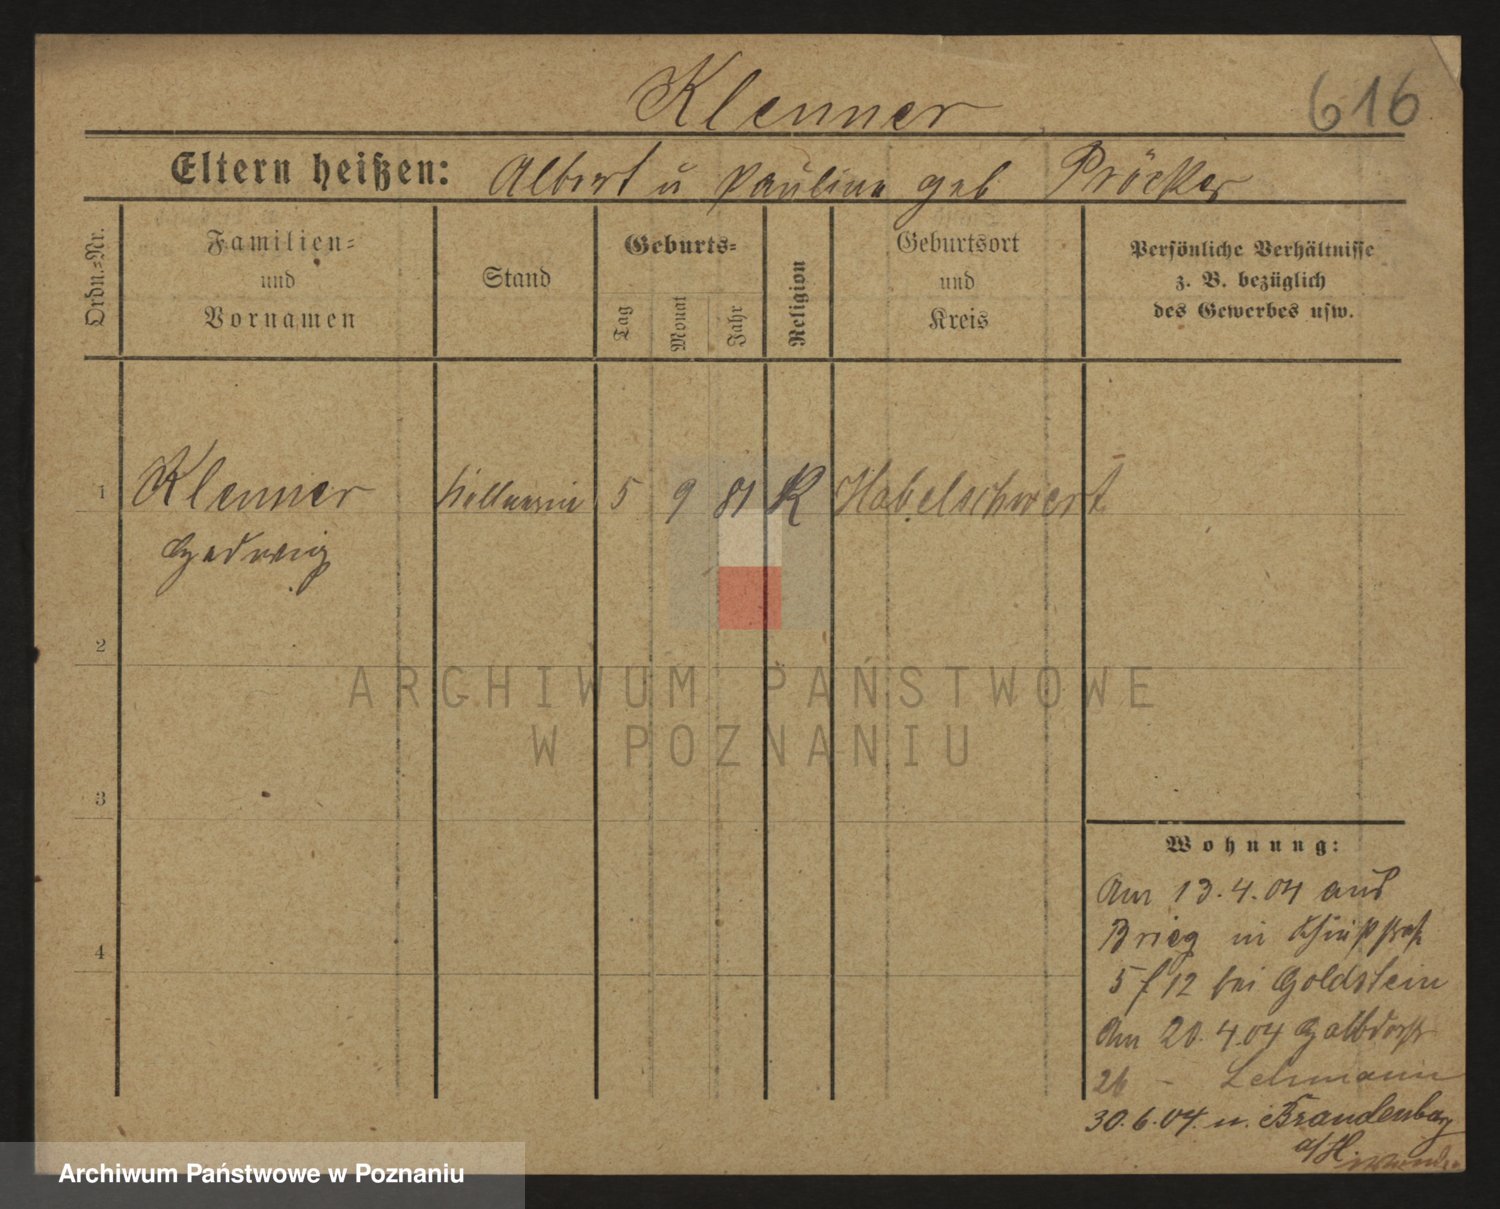 Klenner
616
Eltern heißen: Albert u Pauline geb Pröcker
Ordn.-Nr.
Familien-
und
Vornamen
Stand
Geburts-
Tag
Monat
Jahr
Religion
Geburtsort
und
Kreis
Persönliche Verhältnisse
z. B. bezüglich
des Gewerbes usw.
1
Klenner
Hedwig
Kellnerin
5
9
81
K
Habelschwert
2
ARCHIWUM PAŃSTWOWE
W POZNANIU
3
4
Wohnung:
Am 13.4.04 aus
Brieg in
5 f 12 bei Goldstein
Am 20.4.04 Halbdorfstr
26 - Lehmann
30.6.04. n. Brandenburg
a/H.
Archiwum Państwowe w Poznaniu